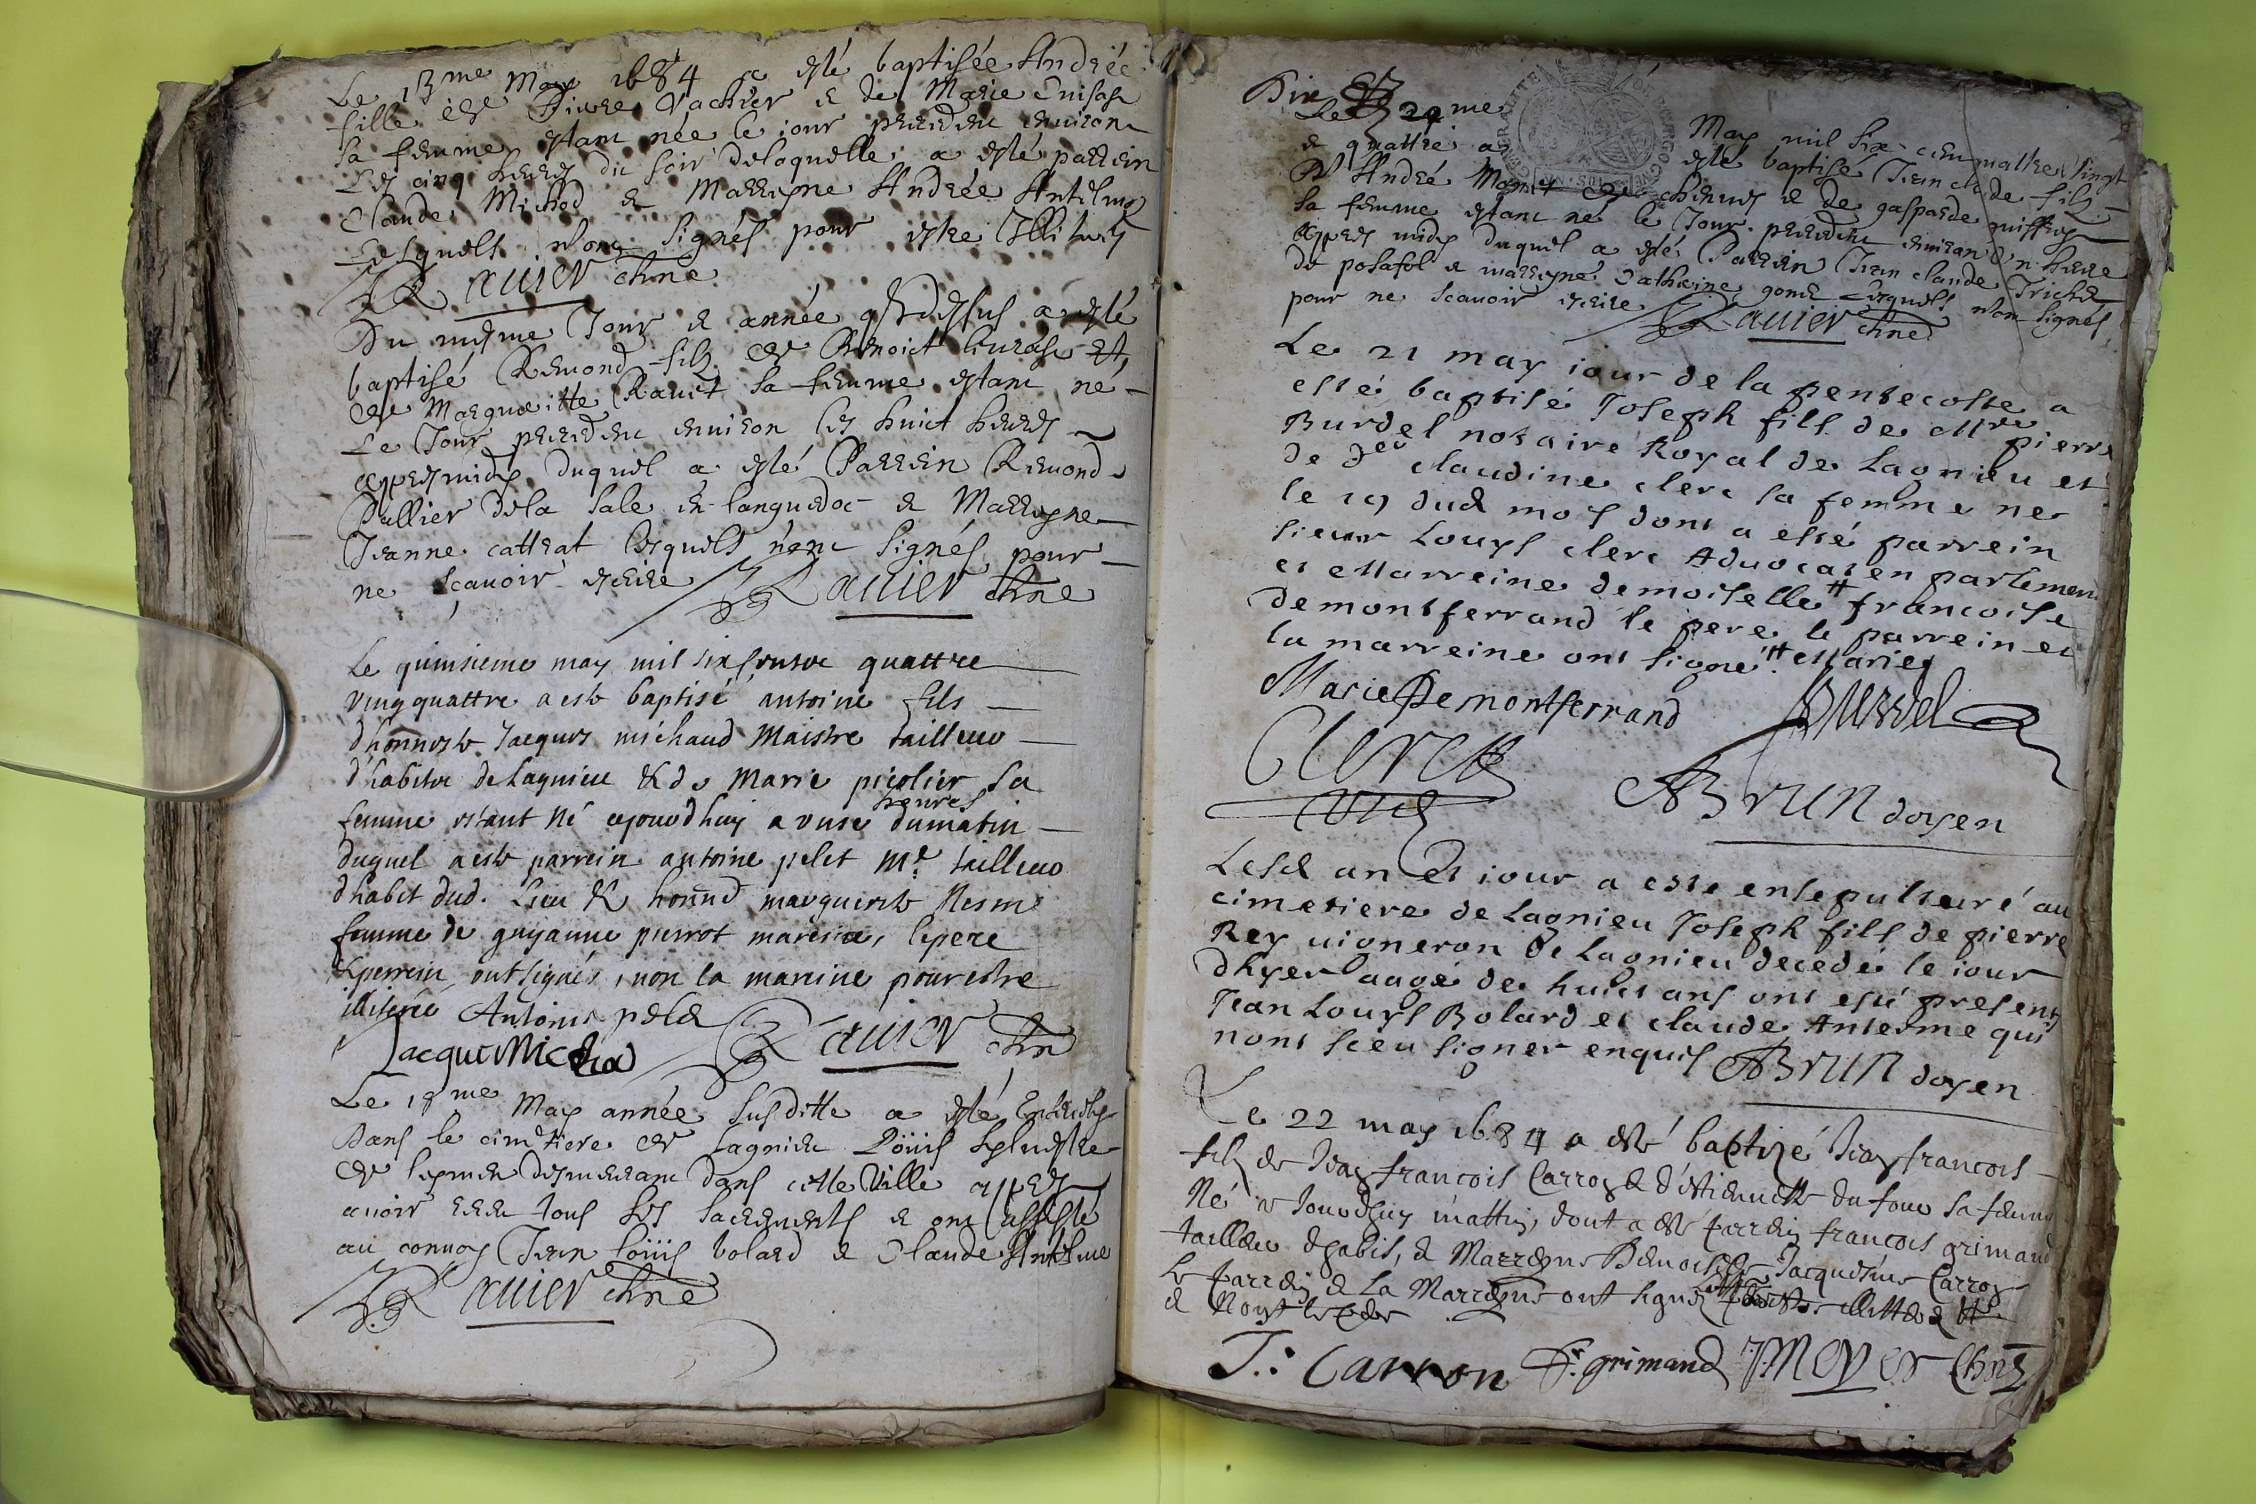 Le 13me May 1684 a esté baptisée Andrée
fille de Pierre Vachier & de Marie
sa femme estant née le iour precedent environ
les cinq heures du soir de laquelle a esté parrein
Claude Michod & Marreyne Andrée Antelme
Lesquels n'ont signés pour estre Illiterés
Ravier chne
Du mesme Jour & année que dessus a esté
baptisé Remond filz de Benoict et
de Margueritte Ravet sa femme estant né
Le Jour precedent environ les huict heures
apres midy duquel a esté Parrein Remond
Pallier de la Sale en languedoc & Marreyne
Jeanne cattrat lesquels n'ont signés pour
ne scavoir escrire Ravier chne
Le quinsieme may mil six cents quattre
vingquattre a este baptisé antoine fils
d'honneste Jacques michaud Maistre tailleur
d'habits de Lagnieu & de Marie picolier sa
heures
femme estant né ajourdhuy a onse du matin
duquel a este parrein antoine pelet Mr. tailleur
dhabit dud. Lieu & marguerite Nesme
femme de guyaume pierrot mareine, le pere
& perrein ont signés, non la mareine pour estre
illiterée Antoine pelet Ravier chne
Jacque Micha
Le 19me May année susditte a esté Enterré
Dans le cimetiere de Lagnieu Loüis
de demeurant dans cette Ville apres
avoir receu tous les sacrements & ont assisté
au convoy Jean loüis bolard & Claude Antelme
Ravier chne
Dix
Le 20me May mil six cens quattre vingt
& quattre a esté baptisé Jean claude filz
d'André & de gasparde miffrey
sa femme estant né le Jour precedent environ un heure
apres midy duquel a esté Parrein Jean claude Trichet
de posafol & marreyne Catherine gonet lesquels n'ont signés
pour ne scavoir escrire Ravier chne
Le 21 may iour de la pentecoste a
esté baptisé Joseph fils de Mre pierre
Burdel notaire Royal de Lagnieu et
de Delle claudine clerc sa femme ne
le 19 dud mois dont a esté parrein
sieur Louys clerc Advocat en parlement
et Marreine demoiselle # francoise
demontferrand le pere le parrein et
la marreine ont signé. # Marie
Marie Demontferrand Burdel
Clerc
ABrun doyen
Lesd an et iour a este ensepulturé au
cimetiere de Lagnieu Joseph fils de pierre
Rey vigneron de Lagnieu decedé le iour
dhyer aagé de huict ans ont esté presents
Jean Louys Bolard et claude Antelme qui
nont sceu signer enquis ABrun doyen
Le 22 may 1684 a esté baptizé Jean francois
filz de Jean francois Carron & d'estiennette du four sa femme
Né ce Jourdhuy mattin, dont a esté parrein francois grimand
tailleur dhabis, & Marreyne Jacquesme Carron
le parrein & La Marreyne ont signé
& Non le pere
J. Carron F. grimand J. Moyer Chne